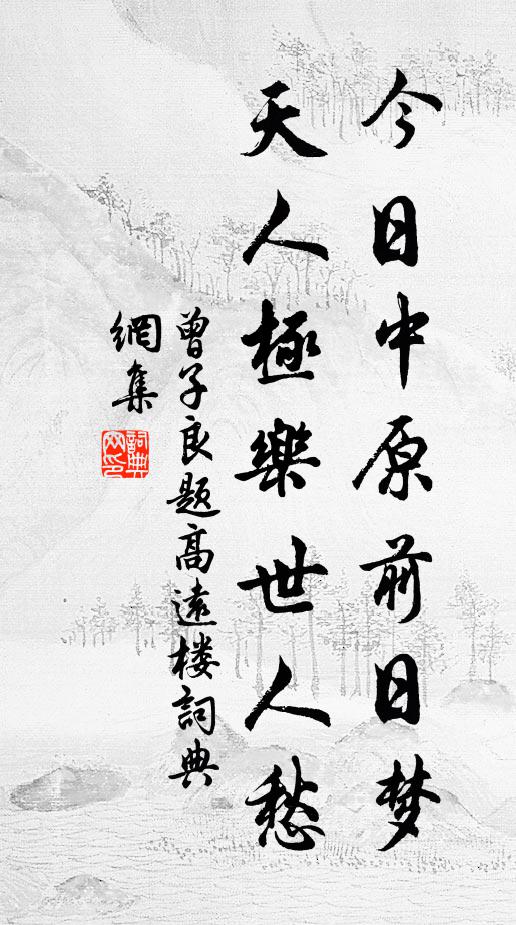 今日中原前日梦
天人極樂世人愁
曾子良题高遠楼詞典
網集
詞典
网印